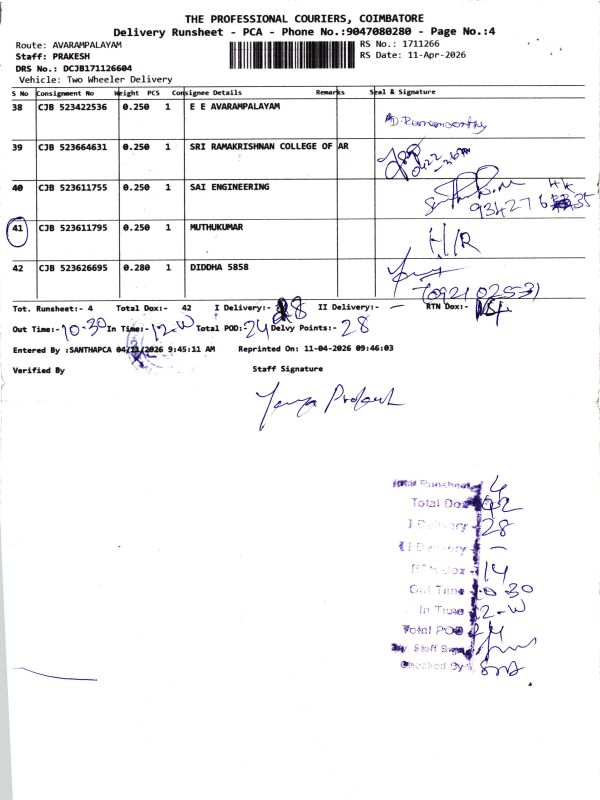 THE PROFESSIONAL COURIERS, COIMBATORE
Delivery Runsheet - PCA - Phone No.:9047080280 - Page No.:4
Route: AVARAMPALAYAM RS No.: 1711266
Staff: PRAKESH RS Date: 11-Apr-2026
DRS No.: DCJB171126604
Vehicle: Two Wheeler Delivery
S No Consignment No Weight PCS Consignee Details Remarks Seal & Signature
38 CJB 523422536 0.250 1 E E AVARAMPALAYAM
39 CJB 523664631 0.250 1 SRI RAMAKRISHNAN COLLEGE OF AR
40 CJB 523611755 0.250 1 SAI ENGINEERING
41 CJB 523611795 0.250 1 MUTHUKUMAR H/R
42 CJB 523626695 0.280 1 DIDDHA 5858
Tot. Runsheet:- 4 Total Dox:- 42 I Delivery:- 28 II Delivery:- — RTN Dox:- 14
Out Time:- 10-30 In Time:- 12-W Total POD: 24 Delvy Points:- 28
Entered By :SANTHAPCA 04/11/2026 9:45:11 AM Reprinted On: 11-04-2026 09:46:03
Verified By Staff Signature
Total Runsheet 4
Total Dox 42
I Delivery 28
II Delivery —
RTN Dox 14
Out Time 10-30
In Time 12-W
Total POD 24
Staff Sign
Checked By